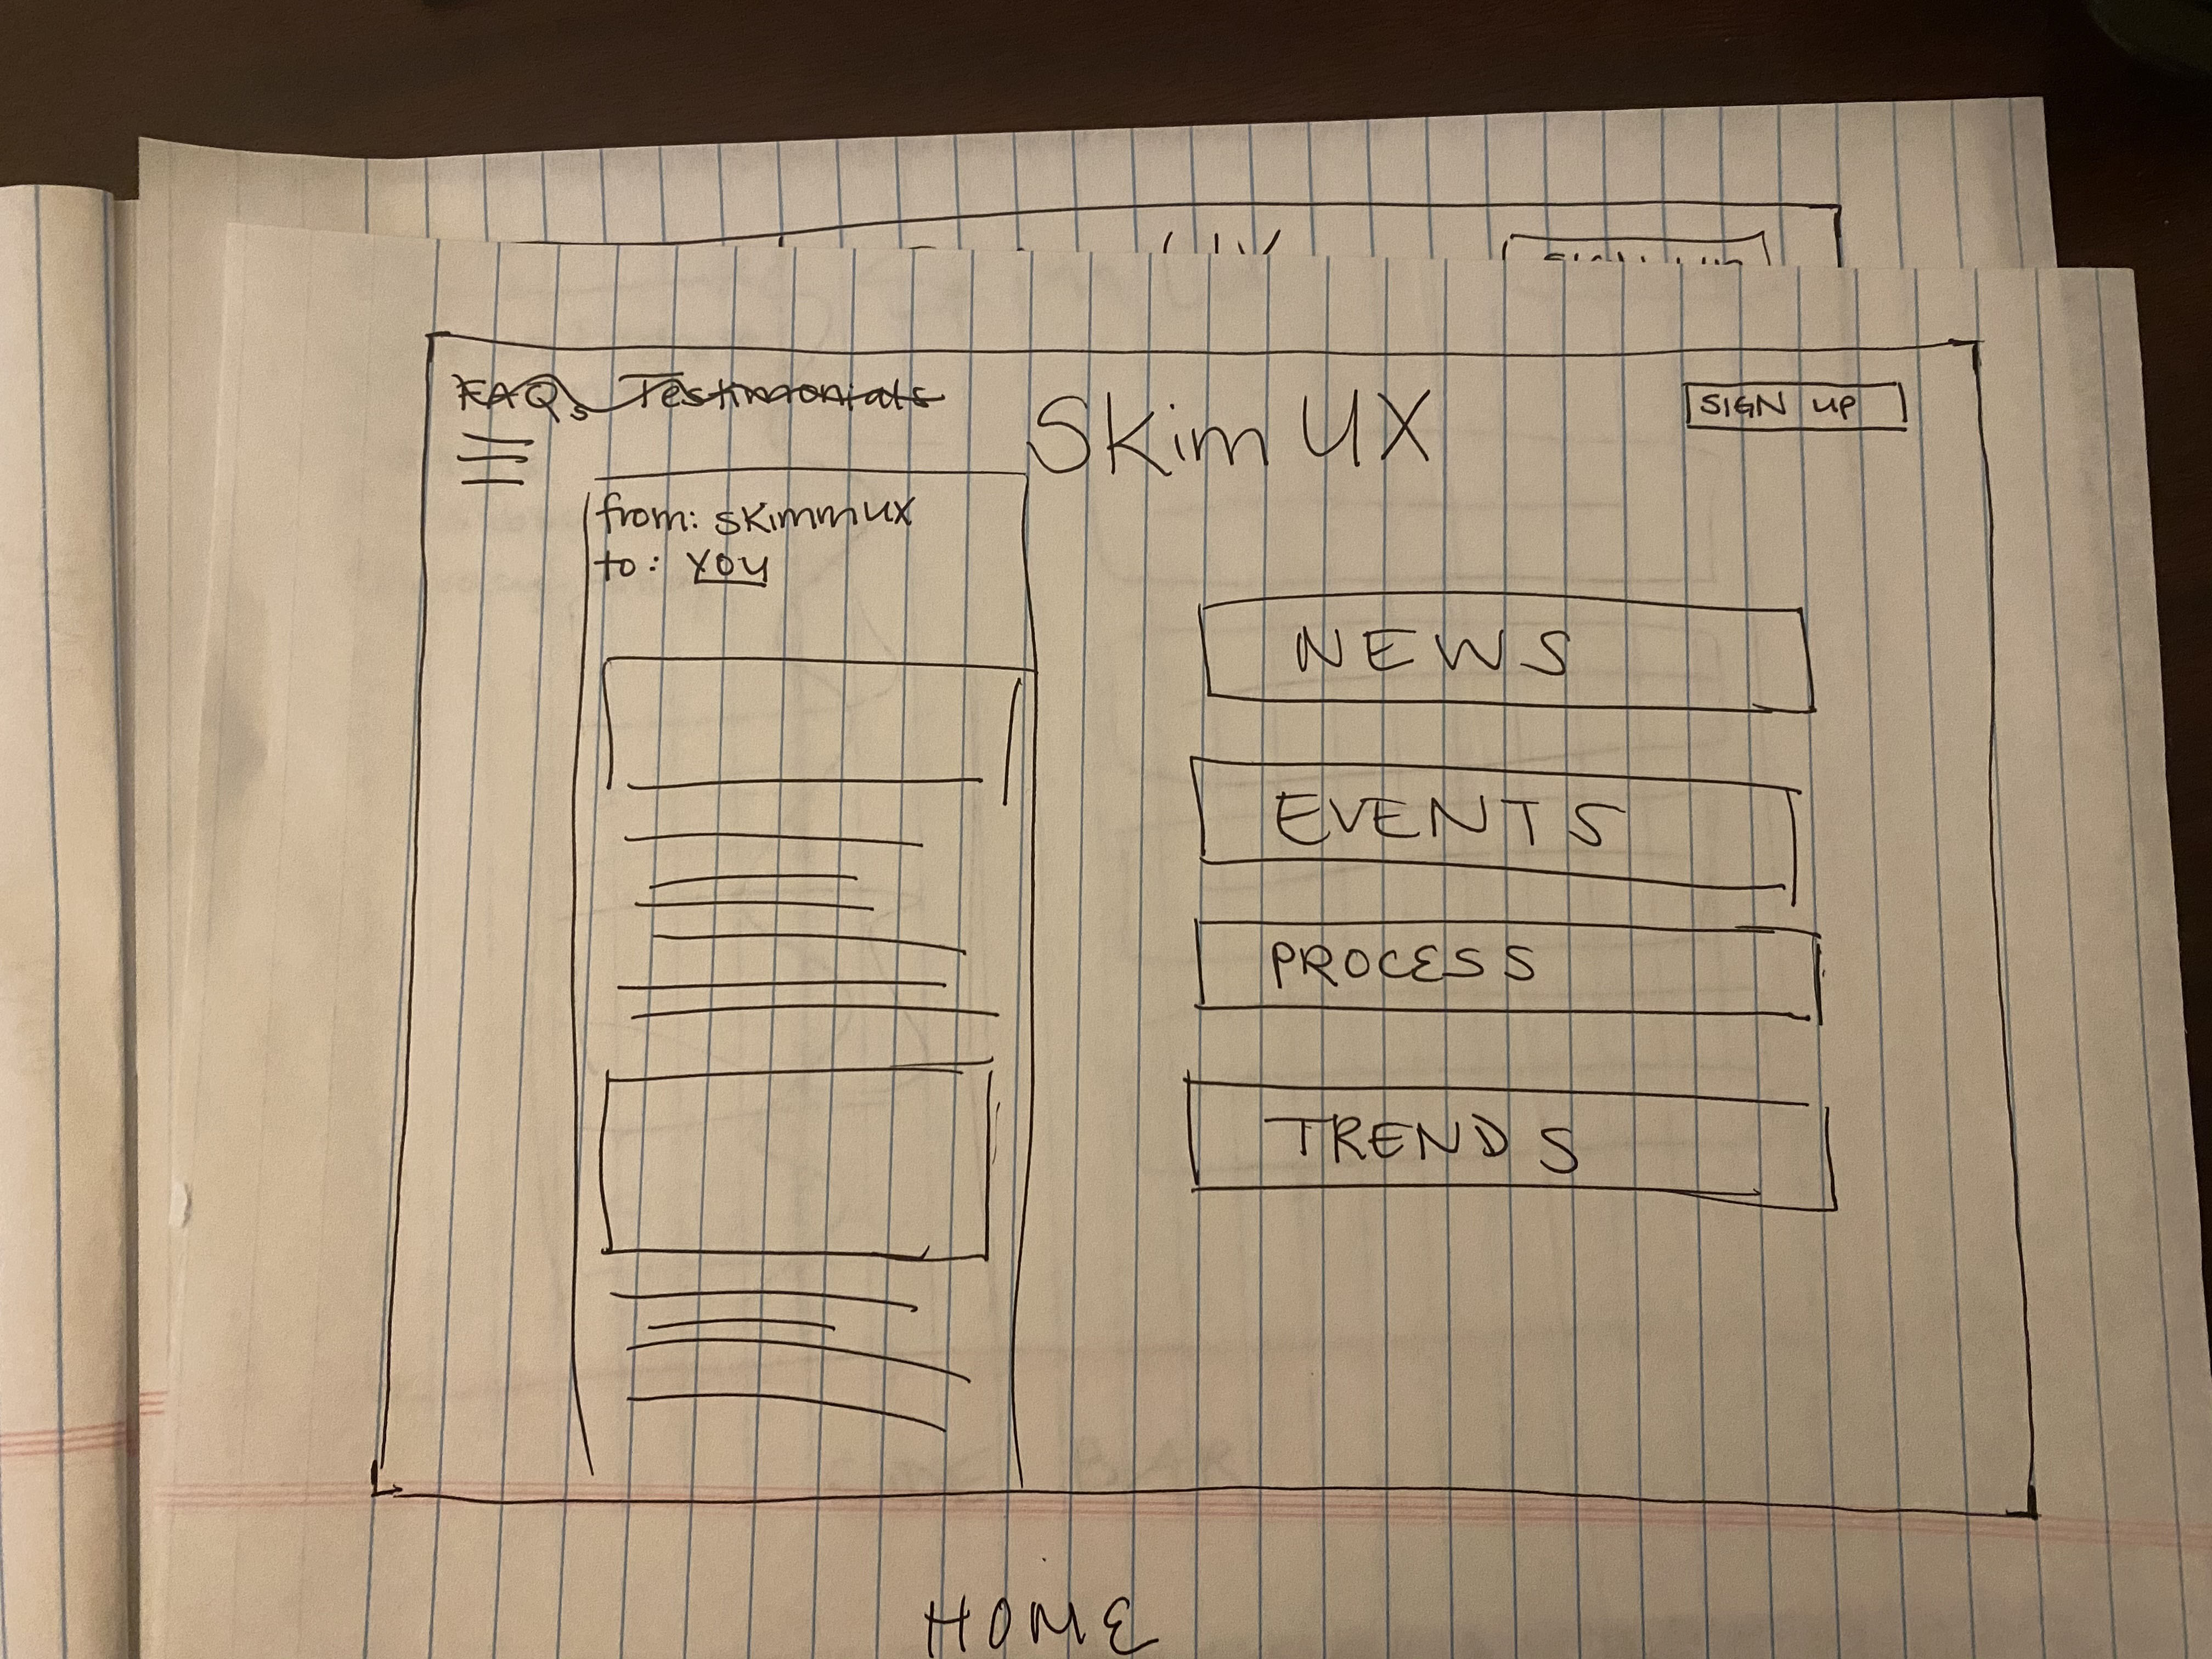 FAQs Testimonials
Skim UX
SIGN UP
from: skimmux
to: you
NEWS
EVENTS
PROCESS
TRENDS
HOME